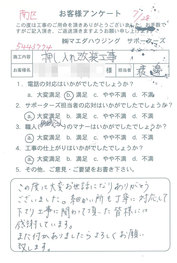 お客様アンケート
この度は工事のご用命を頂きありがとうございました。お手数ですが
ご記入頂き、ご返送頂きますようお願い申し上げます。
㈱マエダハウジング サポーターズ
施工内容
押し入れ改装工事
様
担当
1. 電話の対応はいかがでしたでしょうか?
a. 大変満足 b. 満足 c. やや不満 d. 不満
2. サポーターズ担当者の応対はいかがでしたでしょうか?
a. 大変満足 b. 満足 c. やや不満 d. 不満
3. 職人のマナーはいかがでしたでしょうか?
a. 大変満足 b. 満足 c. やや不満 d. 不満
4. 工事の仕上がりはいかがでしたでしょうか?
a. 大変満足 b. 満足 c. やや不満 d. 不満
5. ご感想をご記入ください。
この度は大変お世話になりありがとう
ございました。細かい所も丁寧に対応して
下さり工事に関わって頂いた皆様には
感謝しています。
また何かありましたらよろしくお願い
致します。